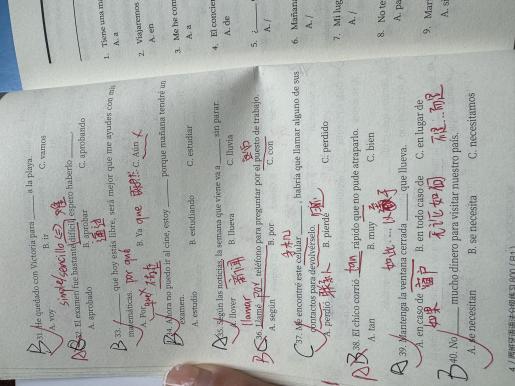 1. Tiene una m
A. a
2. Viajaremos
A. en
3. Me he com
A. a
4. El concier
A. de
5. ¿
A. /
6. Mañana
A. /
7. Mi lug
A. /
8. No te
A. pa
9. Mar
A. si
B 31. He quedado con Victoria para ____ a la playa.
A. voy B. ir C. vamos
simple/sencillo 难
32. El examen fue bastante difícil, espero haberlo
A. aprobado B. aprobar C. aprobando
通过
B 33. ____ que hoy estás libre, será mejor que me ayudes con mis
matemáticas. por qué
A. Por B. Ya que C. Aún
no puedo ir al cine, estoy ____ porque mañana tendré un
examen.
A. estudio B. estudiando C. estudiar
A 35. Según las noticias, la semana que viene va a ____ sin parar.
A. llover 新闻 B. llueva C. lluvia
llamar
B 36. Llamé por teléfono para preguntar por el puesto de trabajo.
A. según B. por C. con
手机
C 37. Me encontré este celular ____, habría que llamar alguno de sus
contactos para devolvérselo.
A. perdió B. pierde C. perdido
B 38. El chico corrió tan rápido que no pude atraparlo.
A. tan B. muy C. bien
A 39. Mantenga la ventana cerrada ____ que llueva.
A. en caso de B. en todo caso de C. en lugar de
如果 窗户 无论如何 而是
B 40. No ____ mucho dinero para visitar nuestro país.
A. se necesitan B. se necesita C. necesitamos